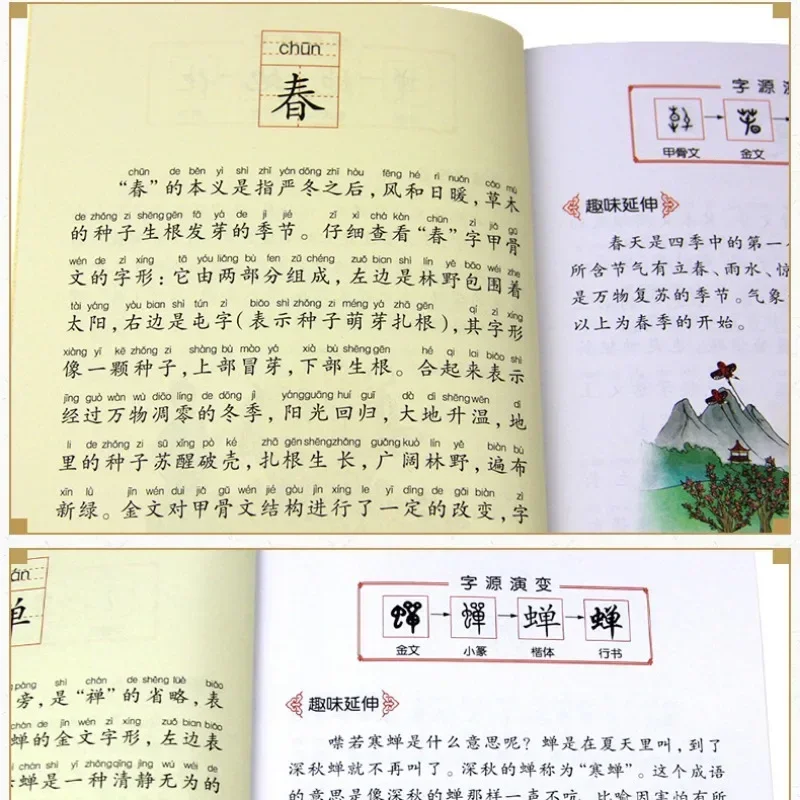 chūn
春
chūn de běn yì shì zhǐ yán dōng zhī hòu fēng hé rì nuǎn cǎo mù
“春”的本义是指严冬之后，风和日暖，草木
de zhǒng zi shēng gēn fā yá de jì jié zǐ xì chá kàn chūn zì jiǎ gǔ
的种子生根发芽的季节。仔细查看“春”字甲骨
wén de zì xíng tā yóu liǎng bù fen zǔ chéng zuǒ biān shì lín yě bāo wéi zhe
文的字形：它由两部分组成，左边是林野包围着
tài yáng yòu bian shì tún zì biǎo shì zhǒng zi méng yá zhā gēn qí zì xíng
太阳，右边是屯字（表示种子萌芽扎根），其字形
xiàng yī kē zhǒng zi shàng bù mào yá xià bù shēng gēn hé qǐ lai biǎo shì
像一颗种子，上部冒芽，下部生根。合起来表示
jīng guò wàn wù diāo líng de dōng jì yáng guāng huí guī dà dì shēng wēn dì
经过万物凋零的冬季，阳光回归，大地升温，地
li de zhǒng zi sū xǐng pò ké zhā gēn shēng zhǎng guǎng kuò lín yě biàn bù
里的种子苏醒破壳，扎根生长，广阔林野，遍布
xīn lǜ jīn wén duì jiǎ gǔ wén jié gòu jìn xíng le yī dìng de gǎi biàn zì
新绿。金文对甲骨文结构进行了一定的改变，字
字源演
甲骨文 金文
趣味延伸
春天是四季中的第一
所含节气有立春、雨水、惊
是万物复苏的季节。气象
以上为春季的开始。
páng shì chán de shěng lüè biǎo
旁，是“禅”的省略，表
chán de jīn wén zì xíng zuǒ bian biǎo
蝉的金文字形，左边表
chán shì yī zhǒng qīng jìng wú wéi de
蝉是一种清静无为的
字源演变
蝉 蝉
金文 小篆 楷体 行书
趣味延伸
噤若寒蝉是什么意思呢？蝉是在夏天里叫，到了
深秋蝉就不再叫了。深秋的蝉称为“寒蝉”。这个成语
的意思是像深秋的蝉那样一声不吭，比喻因害怕有所